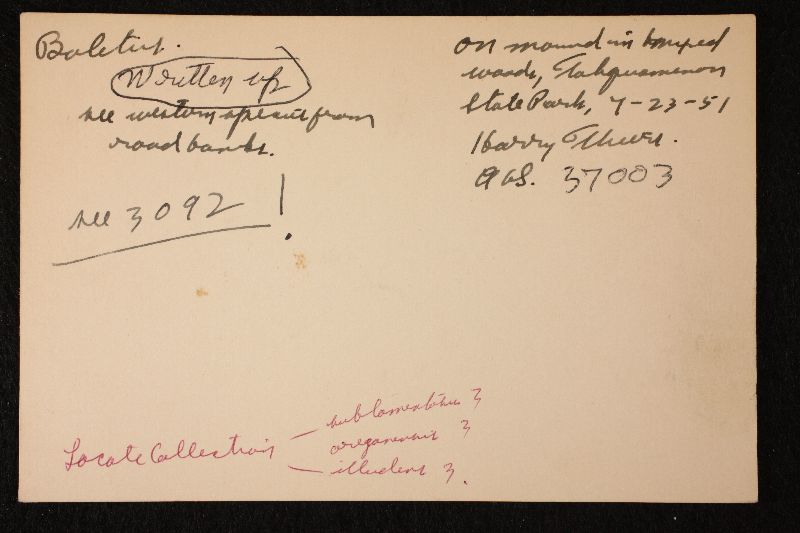 Boletus.
Written up
see western species from
road banks.
see 3092 !
on mound in
woods, Tahquamenon
State Park, 7-23-51
Harry Thiers.
AHS. 37003
Locate Collection
subtomentosus ?
oregonensis ?
illudens ?.